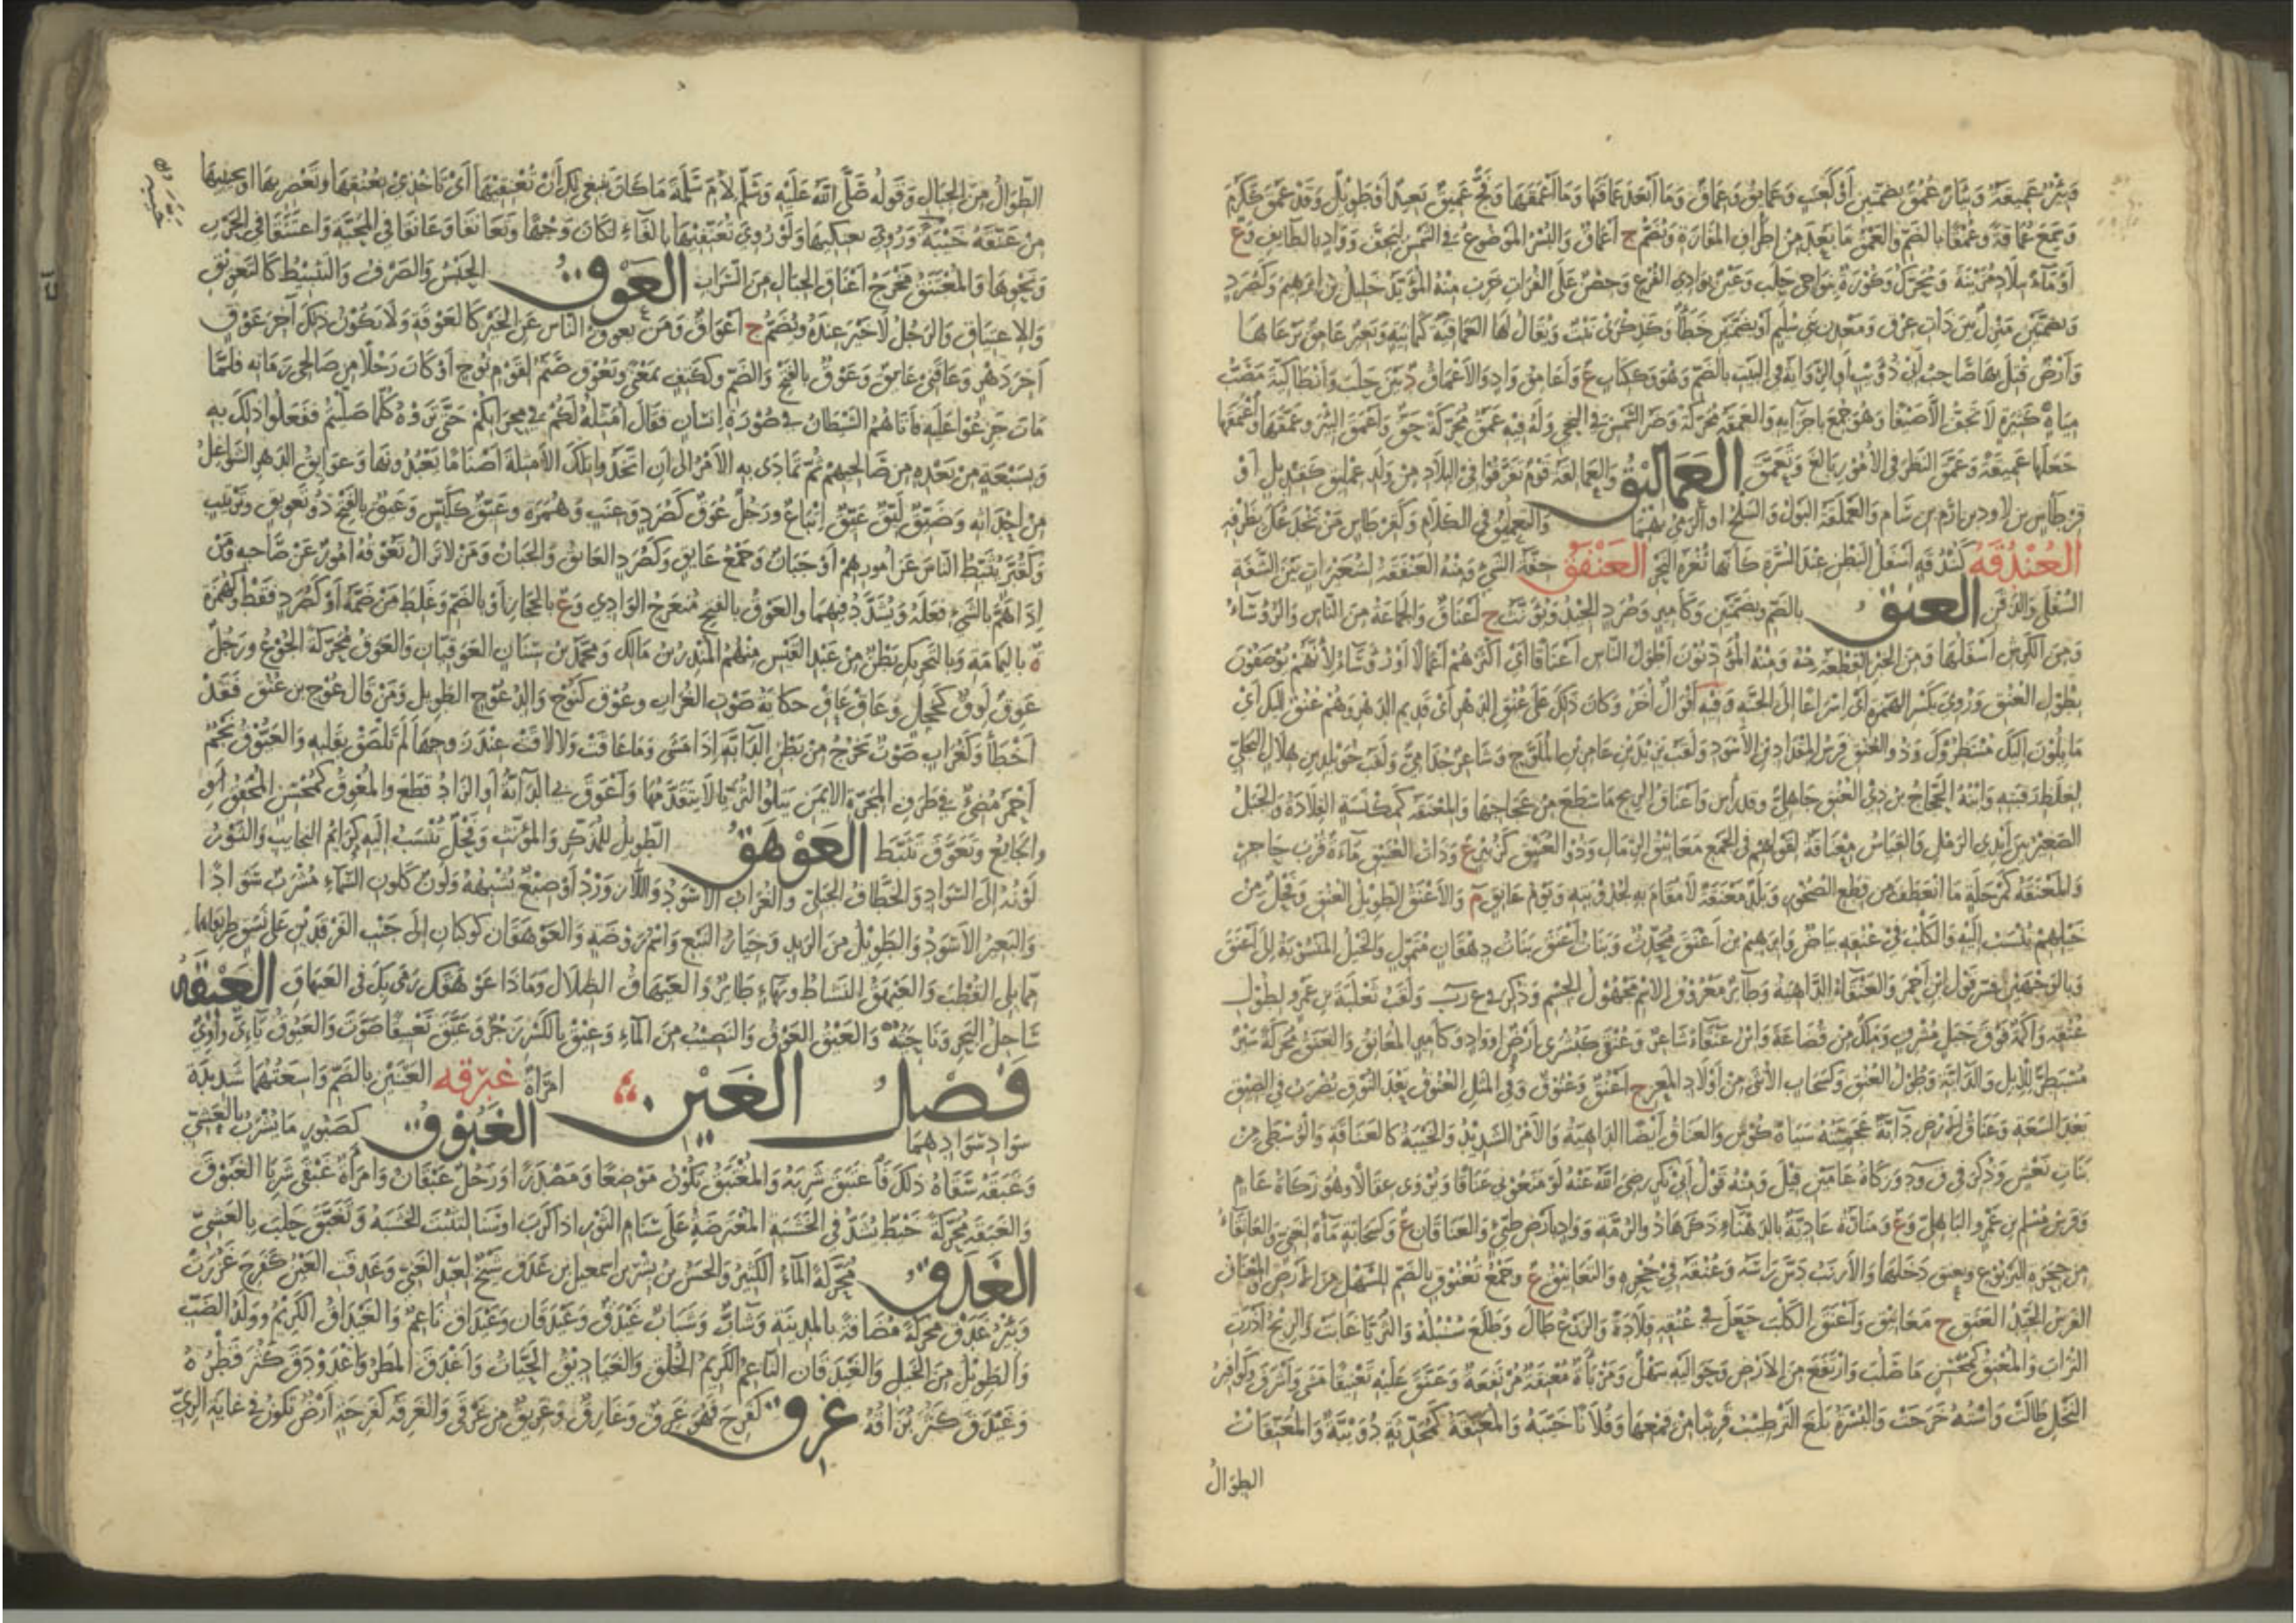 وبئر عميقة وبئار عمق بضمتين أو كعنب وعمائق وعماق وما أبعد عماقتها وما أعمقها وفج عميق بعيد أو طويل وقد عمق ككرم
وسمع عماقة وعمقا بالضم والعمق ما بعد من اطراف المفازة ويضم ج أعماق والبسر الموضوع في الشمس ليجف وواد بالطائف وع
أو ماء ببلاد مزينة ويحرك وكورة بنواحي حلب وعين بوادي الفرع وحصن على الفرات خرب منه المؤيد خليل بن ابرهيم وكصرد
وبضمتين منزل بين ذات عرق ومعدن بني سليم أو بضمتين خطأ وكذكرى نبت ويقال لها العماقية كثمانية وبعير عامق يرعاها
وأرض قتل بها صاحب أبي ذؤيب أو الرواية في البيت بالضم وهو وككتاب ع وأعامق واد والأعماق د بين حلب وأنطاكية مصب
مياه كثيرة لا تجف الا صيفا وهو جمع باجزائه والعمقة محركة وضر السمن في النحي وله فيه عمق محركة حق وأعمق البئر وعمقها واعتمقها
جعلها عميقة وعمق النظر في الأمور بالغ وتعمق العماليق والعمالقة قوم تفرقوا في البلاد من ولد عمليق كقنديل أو
قرطاس بن لاوذ بن ارم بن سام والعملقة البول والسلح أو الرمي بهما والتعميق في الكلام وكقرطاس من يخدعك بظرفه
العندقه كبندقه أسفل البطن عند السرة كأنها ثغرة النحر العنفق خفة الشيء ومنه العنفقة لشعيرات بين الشفة
السفلى والذقن العنق بالضم وبضمتين وكأمير وصرد الجيد ويؤنث ج أعناق والجماعة من الناس والرؤساء
ومن الكرش أسفلها ومن الخبز القطعة منه ومنه المؤذنون أطول الناس أعناقا أي أكثرهم أعمالا أو رؤساء لأنهم يوصفون
بطول العنق وروي بكسر الهمزة أي إسراعا إلى الجنة وفيه أقوال أخر وكان ذلك على عنق الدهر أي قديم الدهر وهم عنق اليك أي
مايلون إليك منتظروك وذو العنق فرس المقداد بن الأسود ولقب يزيد بن عامر بن الملوح وشاعر جذامي ولقب خويلد بن هلال البجلي
لغلظ رقبته وابنه الحجاج بن ذي العنق جاهلي وقد رأس وأعناق الريح ما سطع من عجاجها والمعنقة كمكنسة القلادة والحبل
الصغير بين أيدي الرمل والقياس معناقة لقولهم في الجمع معانيق الرمال وذو العنيق كزبير ع وذات العنيق ماءة قرب حاجر
والمعنقة كمرحلة ما انعطف من قطع الصخور وبلد معنقة لا مقام به لجدوبته ويوم عانق م والأعنق الطويل العنق وفحل من
خيلهم ينسب إليه والكلب في عنقه بياض وابرهيم بن أعنق محدث وبنات أعنق بنات دهقان متمول والخيل المنسوبة إلى أعنق
وبالوجهين فسر قول ابن أحمر والعنقاء الداهية وطائر معروف الاسم مجهول الجسم وذكر في ع ر ب ولقب ثعلبة بن عمرو لطول
عنقه وأكمة فوق جبل مشرف وملك من قضاعة وابن عنقاء شاعر وعنقى كبشرى أرض أو واد وكأمير المعانق والعنق محركة سير
مسبطر للابل والدابة وطول العنق وكسحاب الأنثى من أولاد المعز ج أعنق وعنوق وفي المثل العنوق بعد النوق يضرب في الضيق
بعد السعة وعناق الأرض دابة عجميته سياه كوش والعناق أيضا الداهية والأمر الشديد والخيبة كالعناقة والوسطى من
بنات نعش وذكر في ق و د وزكاة عامين قيل ومنه قول أبي بكر رضي الله عنه لو منعوني عناقا ويروى عقالا وهو زكاة عام
وفرس مسلم بن عمرو الباهلي وع ومنارة عادية بالدهناء ذكرها ذو الرمة وواد بأرض طيئ والعناقان ع وكسحابة ماءة لغني والعانقاء
من جحرة اليربوع وتعنق دخلها والأرنب دس رأسه وعنقه في جحره والتعانيق ع وجمع تعنوق بالضم للسهل من الأرض والمعناق
الفرس الجيد العنق ج معانيق وأعنق الكلب جعل في عنقه قلادة والزرع طال وطلع سنبله والثريا غابت والريح أذرت
التراب والمعنق كمحسن ما صلب وارتفع من الأرض وحواليه سهل ومربأة معنقة مرتفعة وعنق عليه تعنيقا مشى وأشرف وكوافير
النخل طالت واسته خرجت والبسرة بلغ الترطيب قريبا من قمعها وفلانا خيبه والمعنقة كمحدثة دويبة والمعنقات
الطوال
الطوال من الجبال وقوله صلى الله عليه وسلم لأم سلمة ما كان ينبغي لك أن تعنقيها أي تأخذي بعنقها وتعصريها أو تخيبيها
من عنقه خيبه وروي تعنكيها ولو روي تعنفيها بالفاء لكان وجها وتعانقا وعانقا في المحبة واعتنقا في الحرب
ونحوها والمعتنق مخرج أعناق الجبال من السراب العوق الحبس والصرف والتثبيط كالتعويق
والاعتياق والرجل لا خير عنده ويضم ج أعواق ومن يعوق الناس عن الخير كالعوقة ولا يكون ذلك آخر عوق
آخر دهر وعاقني عائق وعوق بالفتح والضم وككتف بمعنى ويعوق صنم لقوم نوح أو كان رجلا من صالحي زمانه فلما
مات جزعوا عليه فأتاهم الشيطان في صورة إنسان فقال أمثله لكم في محرابكم حتى تروه كلما صليتم ففعلوا ذلك به
وبسبعة من بعده من صالحيهم ثم تمادى به الأمر إلى أن اتخذوا تلك الأمثلة أصناما يعبدونها وعوائق الدهر الشواغل
من أحداثه وضيق ليق عيق إتباع ورجل عوق كصرد وعنب وهمزة وعيق ككيس وعيق بالفتح ذو تعويق وتربيث
وكقبر يثبط الناس عن أمورهم أو جبان وجمع عائق وكصرد العائق والجبان ومن لا تزال تعوقه أمور عن صاحبه ومن
إذا هم بالشيء فعله ويشدد فيهما والعوق بالفتح منعرج الوادي وع بالحجاز أو بالضم وغلط من ضمه أو كصرد فقط وكهمزة
ة باليمامة وبالتحريك بطن من عبد القيس منهم المنذر بن مالك ومحمد بن سنان العوقيان والعوق محركة الجوع ورجل
عوق لوق كخجل وعاق عاق حكاية صوت الغراب وعوق كنوح والد عوج الطويل ومن قال عوج بن عنق فقد
أخطأ وكغراب صوت يخرج من بطن الدابة إذا مشى وما عاقت ولا لاقت عند زوجها لم تلصق بقلبه والعيوق نجم
أحمر مضيء في طرف المجرة الأيمن يتلو الثريا لا يتقدمها وأعوق بي الدابة أو الزاد قطع والمعوق كمحسن المخفق أو
الجائع وتعوق تثبط العوهق الطويل للمذكر والمؤنث وفحل تنسب إليه كرائم النجائب والثور
لونه إلى السواد والخطاف الجبلي والغراب الأسود واللازورد أو صبغ يشبهه ولون كلون السماء مشرب سوادا
والبعير الأسود والطويل من الربد وخيار النبع واسم روضة والعوهقان كوكبان إلى جنب الفرقدين على نسق طريقاهما
مما يلي القطب والعيهقة النشاط وبهاء طائر والعيهاق الضلال وماذا عوهقك رمى بك في العيهاق العيقه
ساحل البحر وناحيته والعيق العوق والنصيب من الماء وعيق بالكسر زجر وعيق تعييقا صوت والعيوق يائي واوي
فصل الغين امرأة غبرقه العينين بالضم واسعتهما شديدة
سواد سوادهما الغبوق كصبور ما يشرب بالعشي
وغبقه سقاه ذلك فاغتبق شربه والمغتبق يكون موضعا ومصدرا ورجل غبقان وامرأة غبقى شربا الغبوق
والغبقة محركة خيط يشد في الخشبة المعترضة على سنام الثور إذا كرب أو سنا لتثبت الخشبة وتغبق حلب بالعشي
الغدق محركة الماء الكثير والحسن بن بشر بن اسمعيل بن غدق شيخ لعبد الغني وغدقت العين كفرح غزرت
وبئر غدق محركة مضافة بالمدينة وشاب وشباب غيدق وغيدقان وغيداق ناعم والغيداق الكريم وولد الضب
والطويل من الخيل والغيدقان الناعم الكريم الخلق والغياديق الحيات وأغدق المطر واغدودق كثر قطره
وغيدق كثر بزاقه غرق كفرح فهو غرق وغارق وغريق من غرقى والغرقة كفرحة أرض تكون في غاية الري